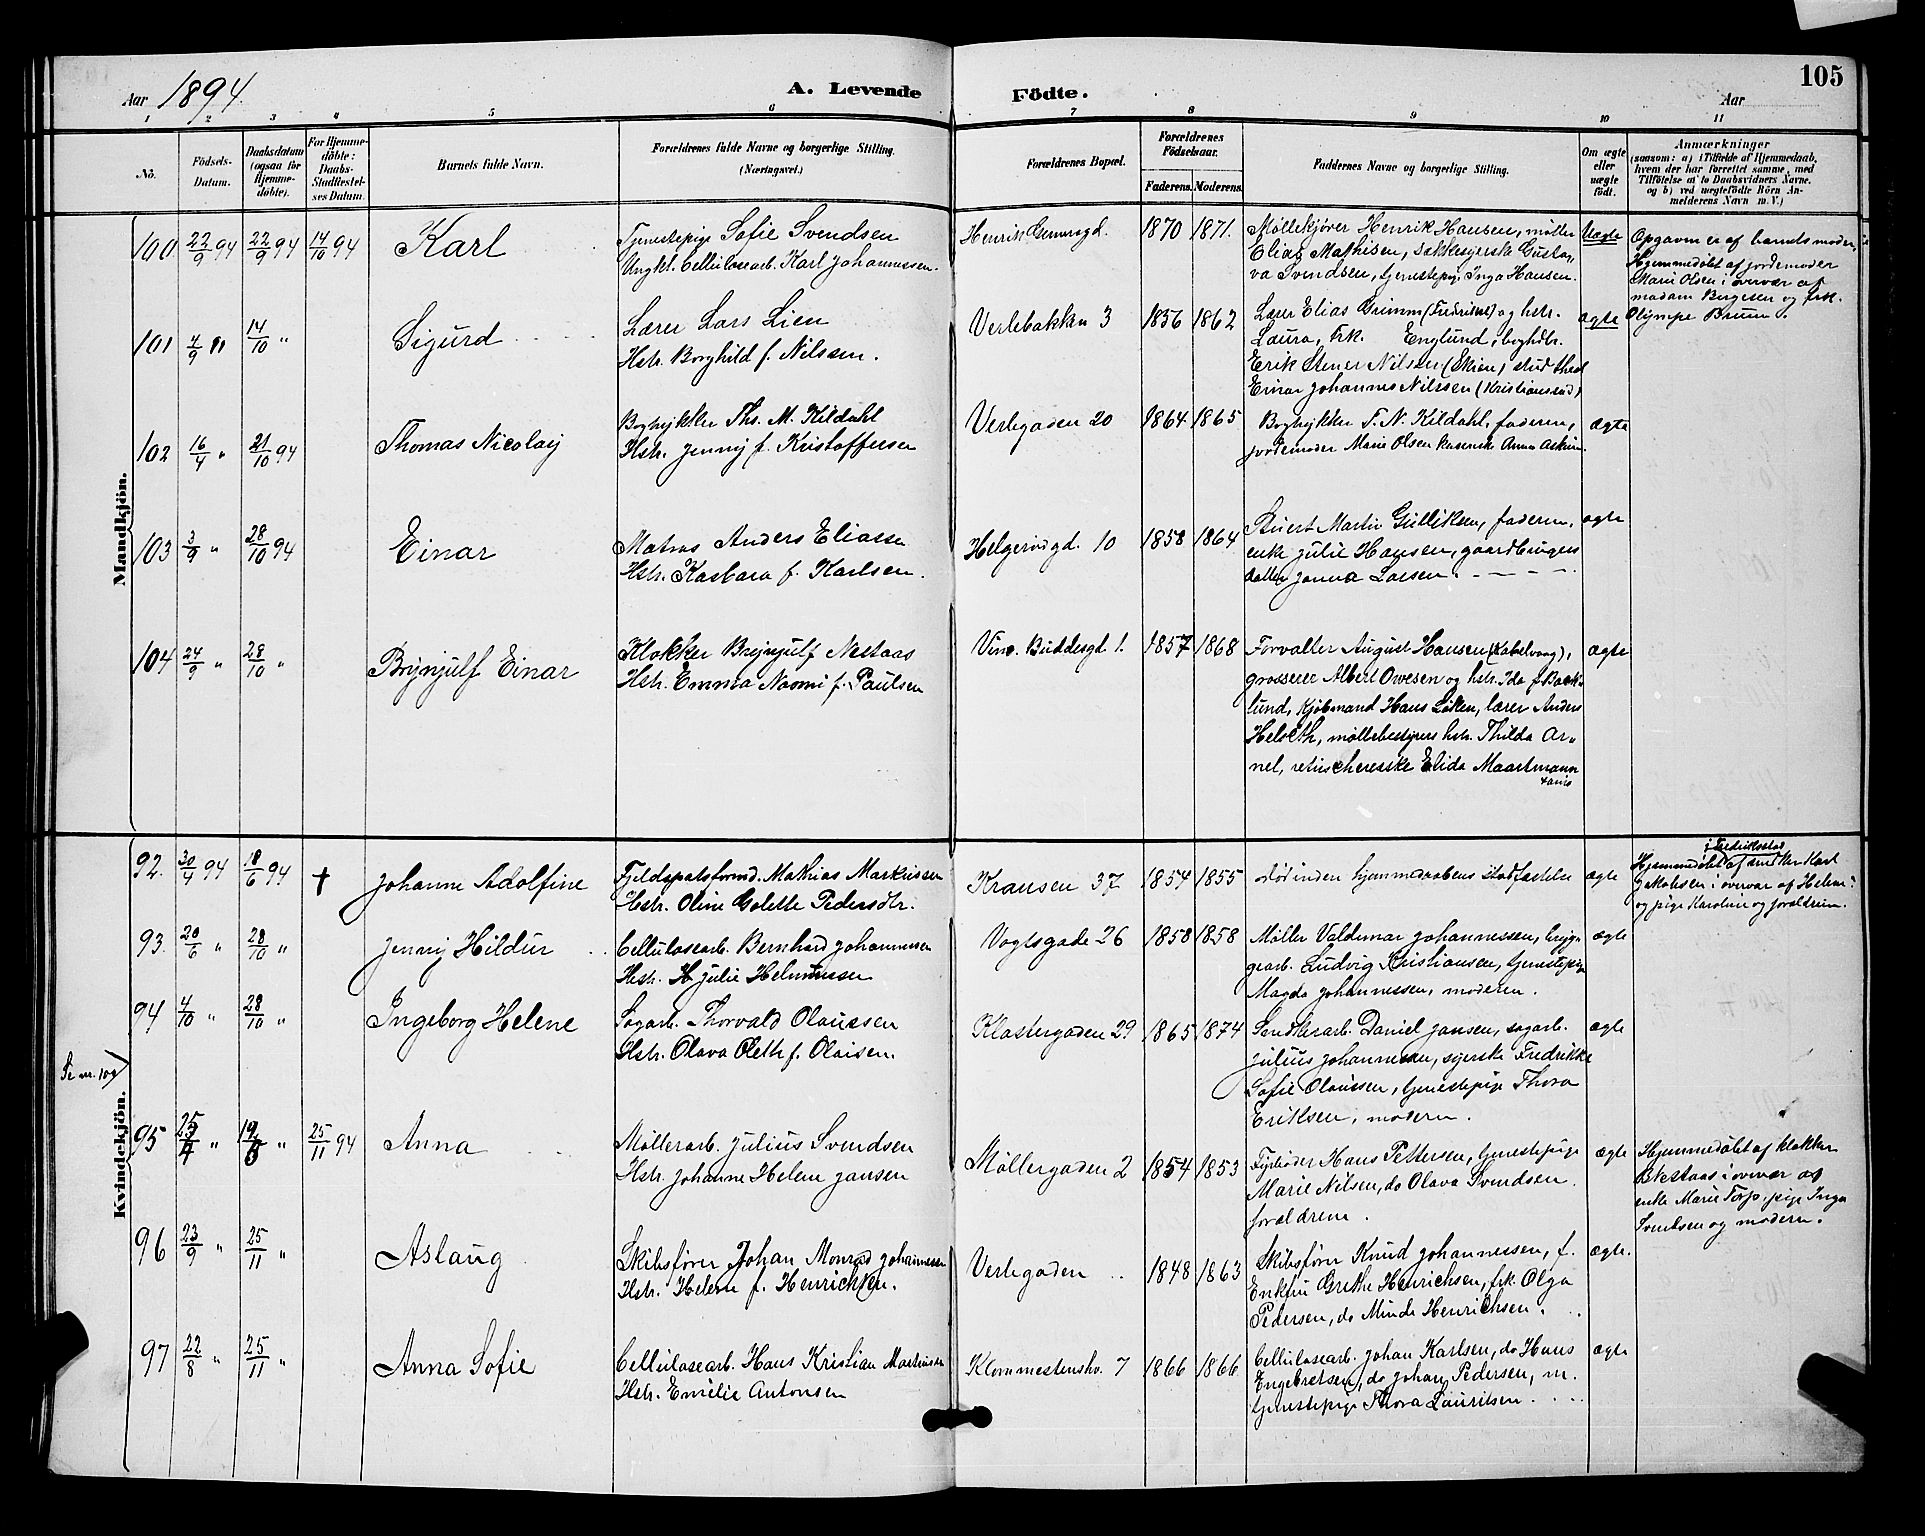 Aar 1894. A. Levende Födte. Aar 105
1 2 3 4 5 6 7 8 9 10 11
No. Födsels-Datum. Daabsdatum (ogsaa for Hjemmedöbte). For Hjemmedöbte: Daabs-Stadfæstelses Datum. Barnets fulde Navn. Forældrenes fulde Navne og borgerlige Stilling. (Næringsvei.) Forældrenes Bopæl. Forældrenes Födselsaar. Faderens. Moderens. Faddernes Navne og borgerlige Stilling. Om ægte eller uægte födt. Anmærkninger (saasom: a) i Tilfælde af Hjemmedaab, hvem der har forrettet samme, med Tilföielse af to Daabsvidners Navne, og b) ved uægtefödte Börn Anmelderens Navn m. V.)
Mandkjön.
100 22/9 94 22/9 94 14/10 94 Karl
Tjenestepige Sofie Svendsen
Ungkl. Cellulosearb. Karl Johannessen.
Henrik Gernersgd. 1870 1871.
Møllekjører Henrik Hansen, møller
Elias Mathisen, sækkesyerske Gusta-
va Svendsen, tjenestepig. Inga Hansen.
Uægte
Opgaven er af barnets moder,
Hjemmedøbt af jordemoder
Marie Olsen i overvær af
madam Birgesen og frk.
Olympe Bruun.
101 4/9 " 14/10 " Sigurd
Lærer Lars Lien
Hstr. Borghild f. Nilssen.
Verlebakken 3 1856 1862
Lærer Elias Grimm (Fredrikst) og hstr.
Laura, Frk. Englund, boghdlr.
Erik Stener Nilssen (Skien) stud theol
Einar Johannes Nilssen (Kristianssand)
ægte
102 16/4 " 21/10 94 Thomas Nicolay
Bogtrykker Ths. M. Kildahl
Hstr. Jenny f. Kristoffersen
Verlegaden 20 1864 1865
Bogtrykker T. N. Kildahl, faderen,
jordemoder Marie Olsen Anna
ægte
103 3/9 " 28/10 94 Einar
Matros Anders Eliassen
Hstr. Barbara f. Karlsen.
Helgerødgd. 10 1858 1864
Stuert Martin Gulliksen, faderen,
enke Julie Hansen, gaardbrugers
datter Janna Larsen.
ægte
104 24/9 " 28/10 " Brynjulf Einar
Klokker Brynjulf Nestaas
Hstr. Emma Naomi f. Paulsen
Vinc. Buddesgd 1. 1857 1868
Forvalter August Hansen (Kabelvaag),
grosserer Albert Owesen og hstr. Ida f. Back-
lund, kjøbmand Hans Løken, lærer Anders
Helseth, møllebestyrers hstr. Thilda Ar-
nel, retuscherske Elida Maartmann
ægte
Kvindekjön.
92. 30/4 94 18/6 94 † Johanne Adolfine
Fjeldspatsformd. Mathias Markussen
Hstr. Oline Golette Pedersdtr.
Kransen 37 1854 1855
død inden hjemmedaabens stadfæstelse
ægte
i Fredriksstad
Hjemmedøbt af snedker Karl
Jakobsen i overvær af Helene
og pige Karoline og forældrene.
93. 20/6 " 28/10 " Jenny Hildur
Cellulosearb. Bernhard Johannessen
Hstr. H Julie Helmussen
Vogtsgade 26 1858 1858
Møller Valdemar Johannessen, bryg-
gearb. Ludvig Kristiansen, tjenestepige
Magda Johannessen, moderen.
ægte
94 4/10 " 28/10 " Ingeborg Helene
Sagarb. Thorvald Olaussen
Hstr. Olava Olette f. Olaisen.
Klostergaden 29 1865 1874
Snedkerarb. Daniel Jansen, sagarb.
Julius Johannessen, syerske Fredrikke
Sofie Olaussen, tjenestepige Thora
Eriksen, moderen.
ægte
Se nr. 109
95 25/4 " 19/6 " 25/11 94 Anna
Møllerarb. Julius Svendsen
Hstr. Johanne Helene Jansen
Møllergaden 2 1854 1853
Fyrbøder Hans Pettersen, tjenestepige
Marie Nilsen, do Olava Svendsen.
forældrene.
ægte
Hjemmedøbt af klokker
Nestaas i overvær af
enke Marie Torp, pige Inga
Svendsen og moderen.
96 23/9 " 25/11 " Aslaug
Skibsfører Johan Monrad Johannessen
Hstr. Helene f. Henrichsen.
Verlegaden .. 1848 1863
Skibsfører Knud Johannessen, f.
Enkefru Grethe Henrichsen, frk. Olga
Pedersen, do Minda Henrichsen.
ægte.
97 22/8 " 25/11 " Anna Sofie
Cellulosearb. Hans Kristian Martinsen
Hstr. Emilie Antonsen
Klommestenskv. 7 1866 1866
Cellulosearb. Johan Karlsen, do Hans
Engebretsen, do Johan Pedersen, m.
tjenestepige Thora Lauritsen.
ægte